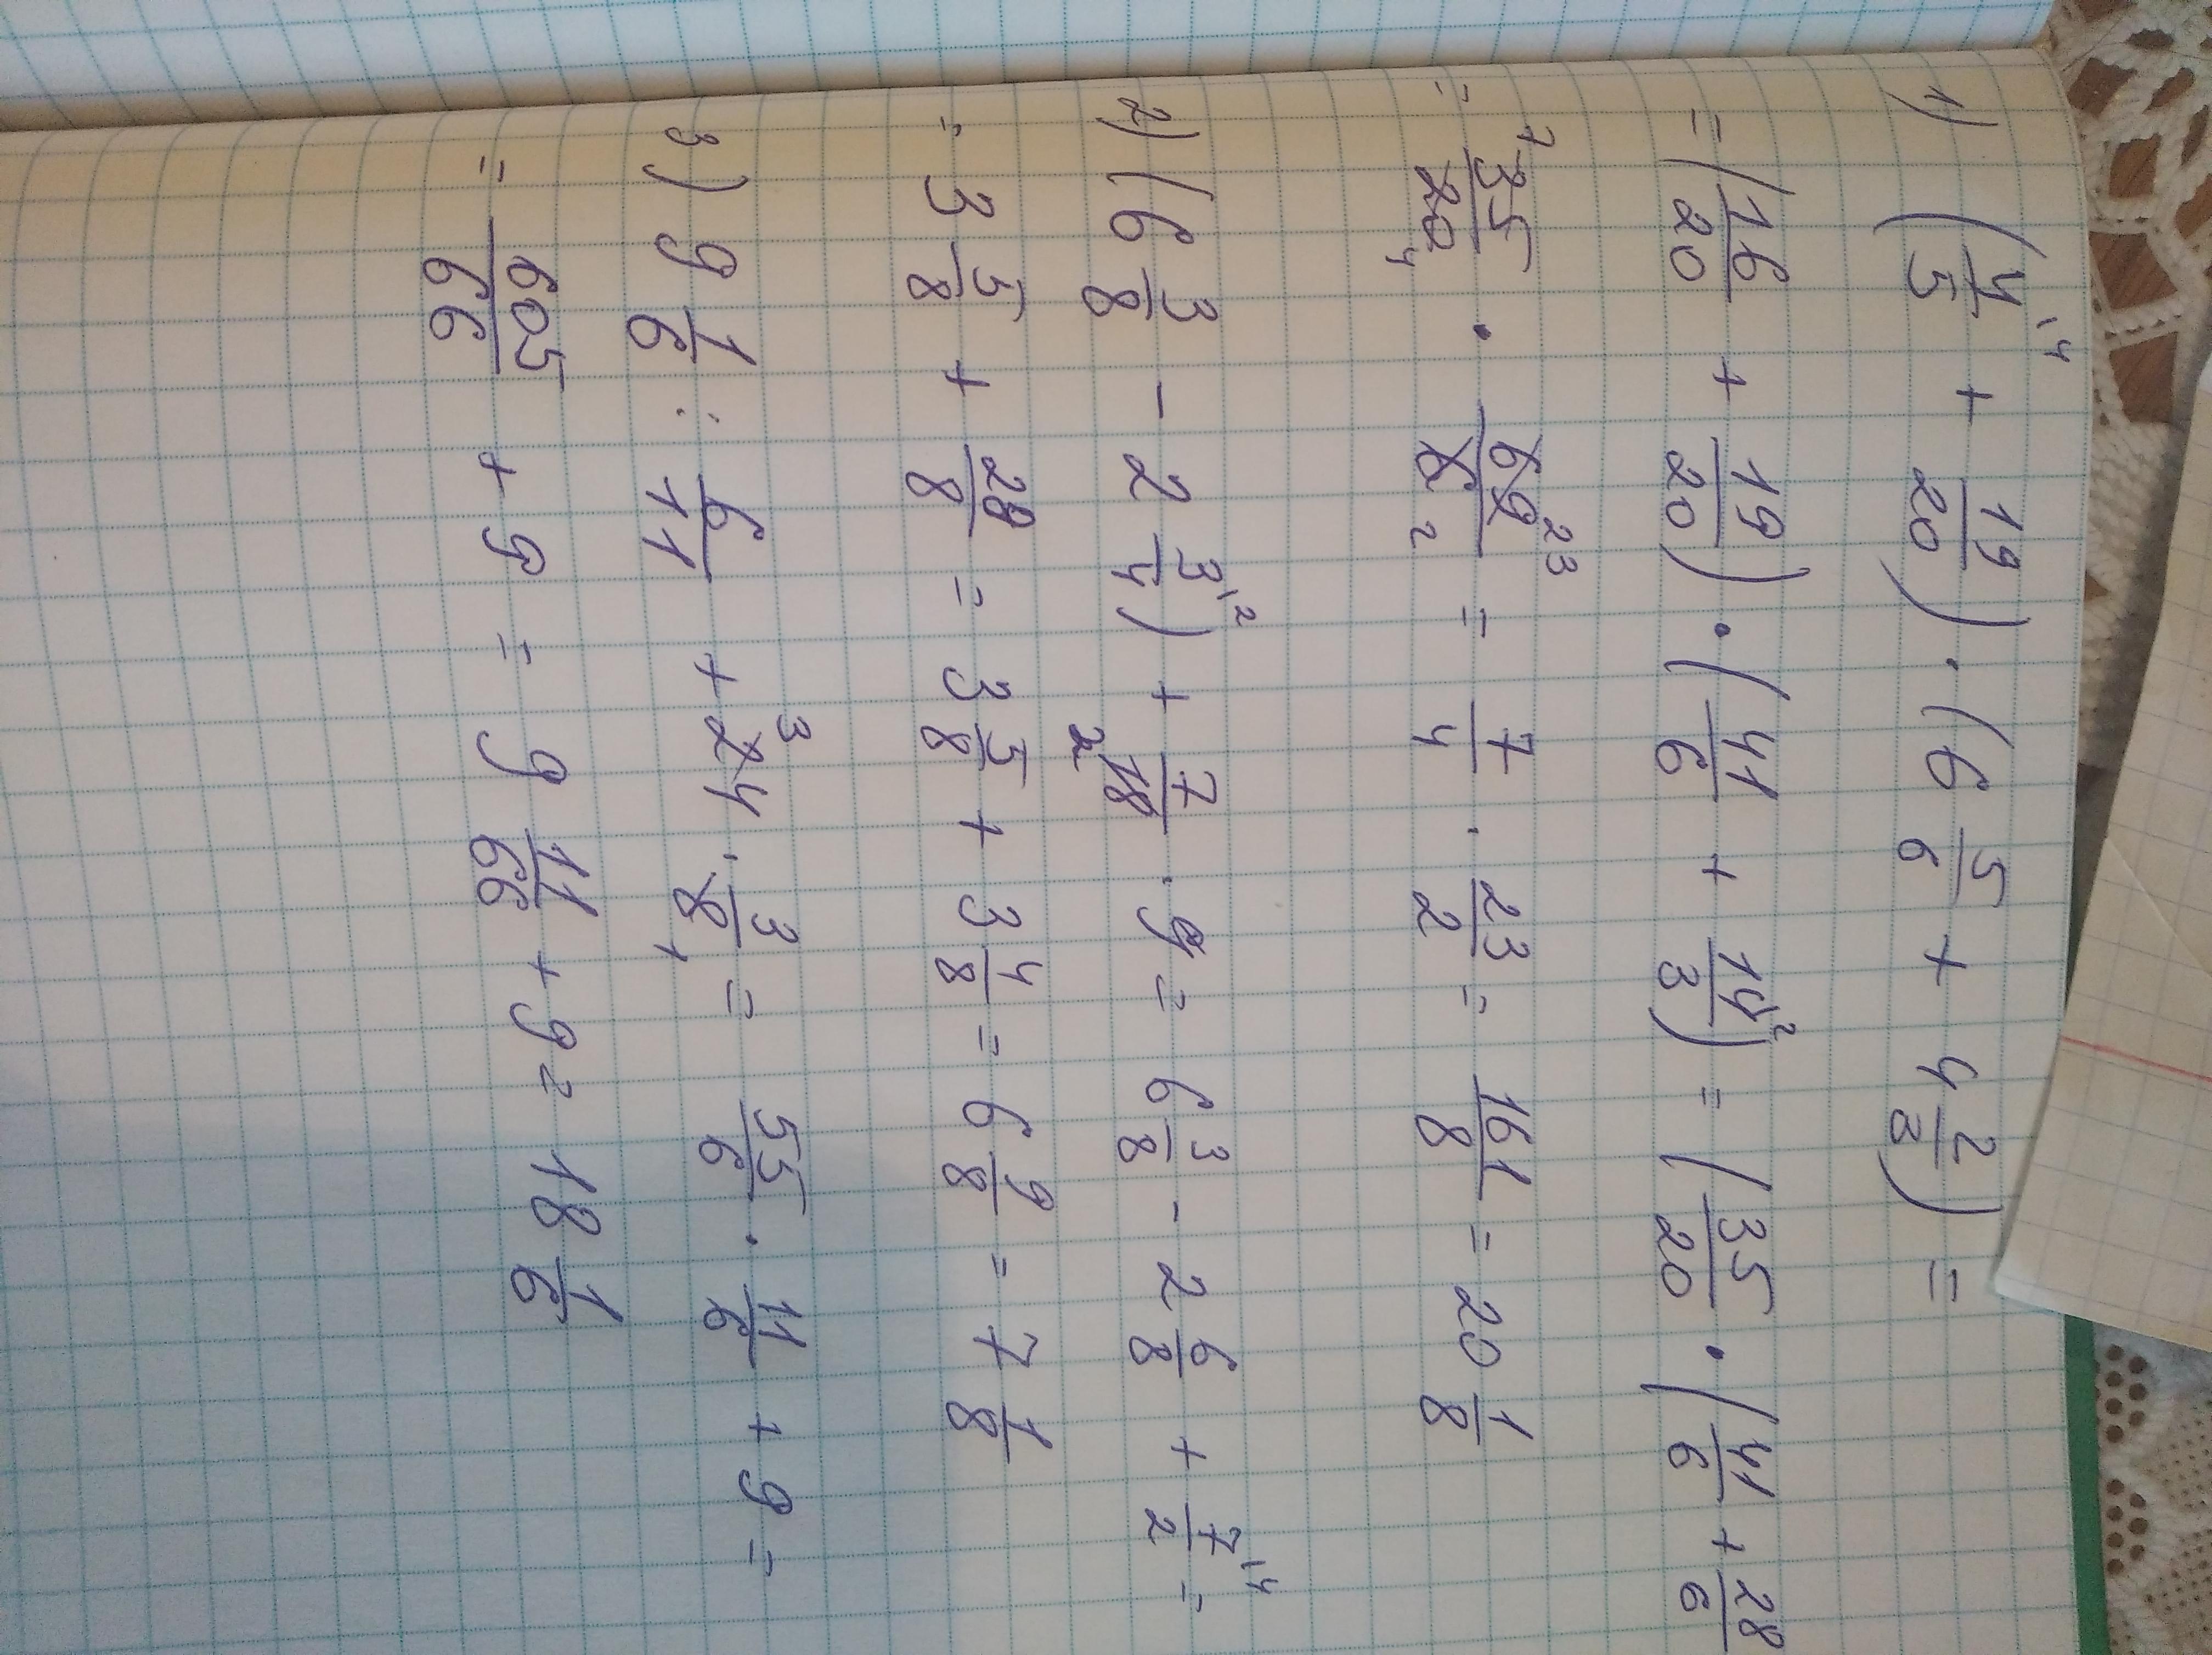 1) (4/5 \4 + 19/20) · (6 5/6 + 4 2/3) =
= (16/20 + 19/20) · (41/6 + 14/3 \2) = (35/20 · (41/6 + 28/6
= 7 35/20 4 · 69/6 23 2 = 7/4 · 23/2 = 161/8 = 20 1/8
2) (6 3/8 - 2 3/4 \2) + 7/18 2 · 9 = 6 3/8 - 2 6/8 + 7/2 \4 =
= 3 5/8 + 28/8 = 3 5/8 + 3 4/8 = 6 9/8 = 7 1/8
3) 9 1/6 : 6/11 + 24 3 · 3/8 1 = 55/6 · 11/6 + 9 =
= 605/66 + 9 = 9 11/66 + 9 = 18 1/6